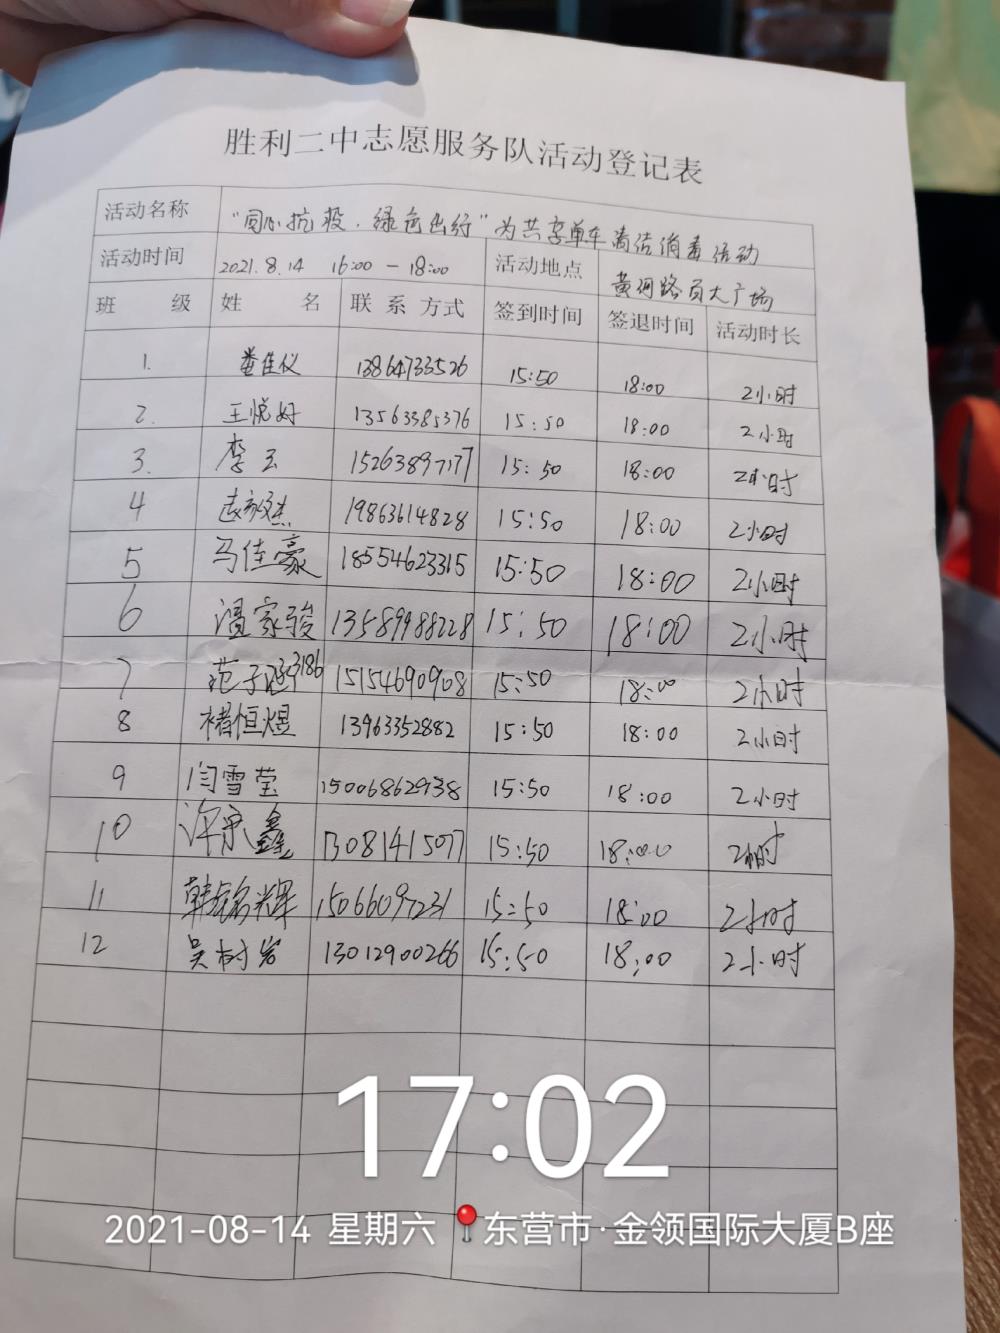 胜利二中志愿服务队活动登记表
活动名称 "同心抗疫.绿色出行"为共享单车清洁消毒活动
活动时间 2021.8.14 16:00-18:00 活动地点 黄河路百大广场
班 级 姓 名 联系方式 签到时间 签退时间 活动时长
1. 佳仪 13864733526 15:50 18:00 2小时
2. 王悦好 13563385376 15:50 18:00 2小时
3. 李玉 15263897177 15:50 18:00 2小时
4 19863614828 15:50 18:00 2小时
5 马佳豪 18554623315 15:50 18:00 2小时
6 潘家骏 13589988228 15:50 18:00 2小时
7 范子涵3186 15154690908 15:50 18:00 2小时
8 褚恒煜 13963352882 15:50 18:00 2小时
9 闫雪莹 15006862938 15:50 18:00 2小时
10 许承鑫 13081415077 15:50 18:00 2小时
11 韩铭辉 15066097231 15:50 18:00 2小时
12 吴树岩 13012900266 15:50 18:00 2小时
17:02
2021-08-14 星期六 东营市·金领国际大厦B座